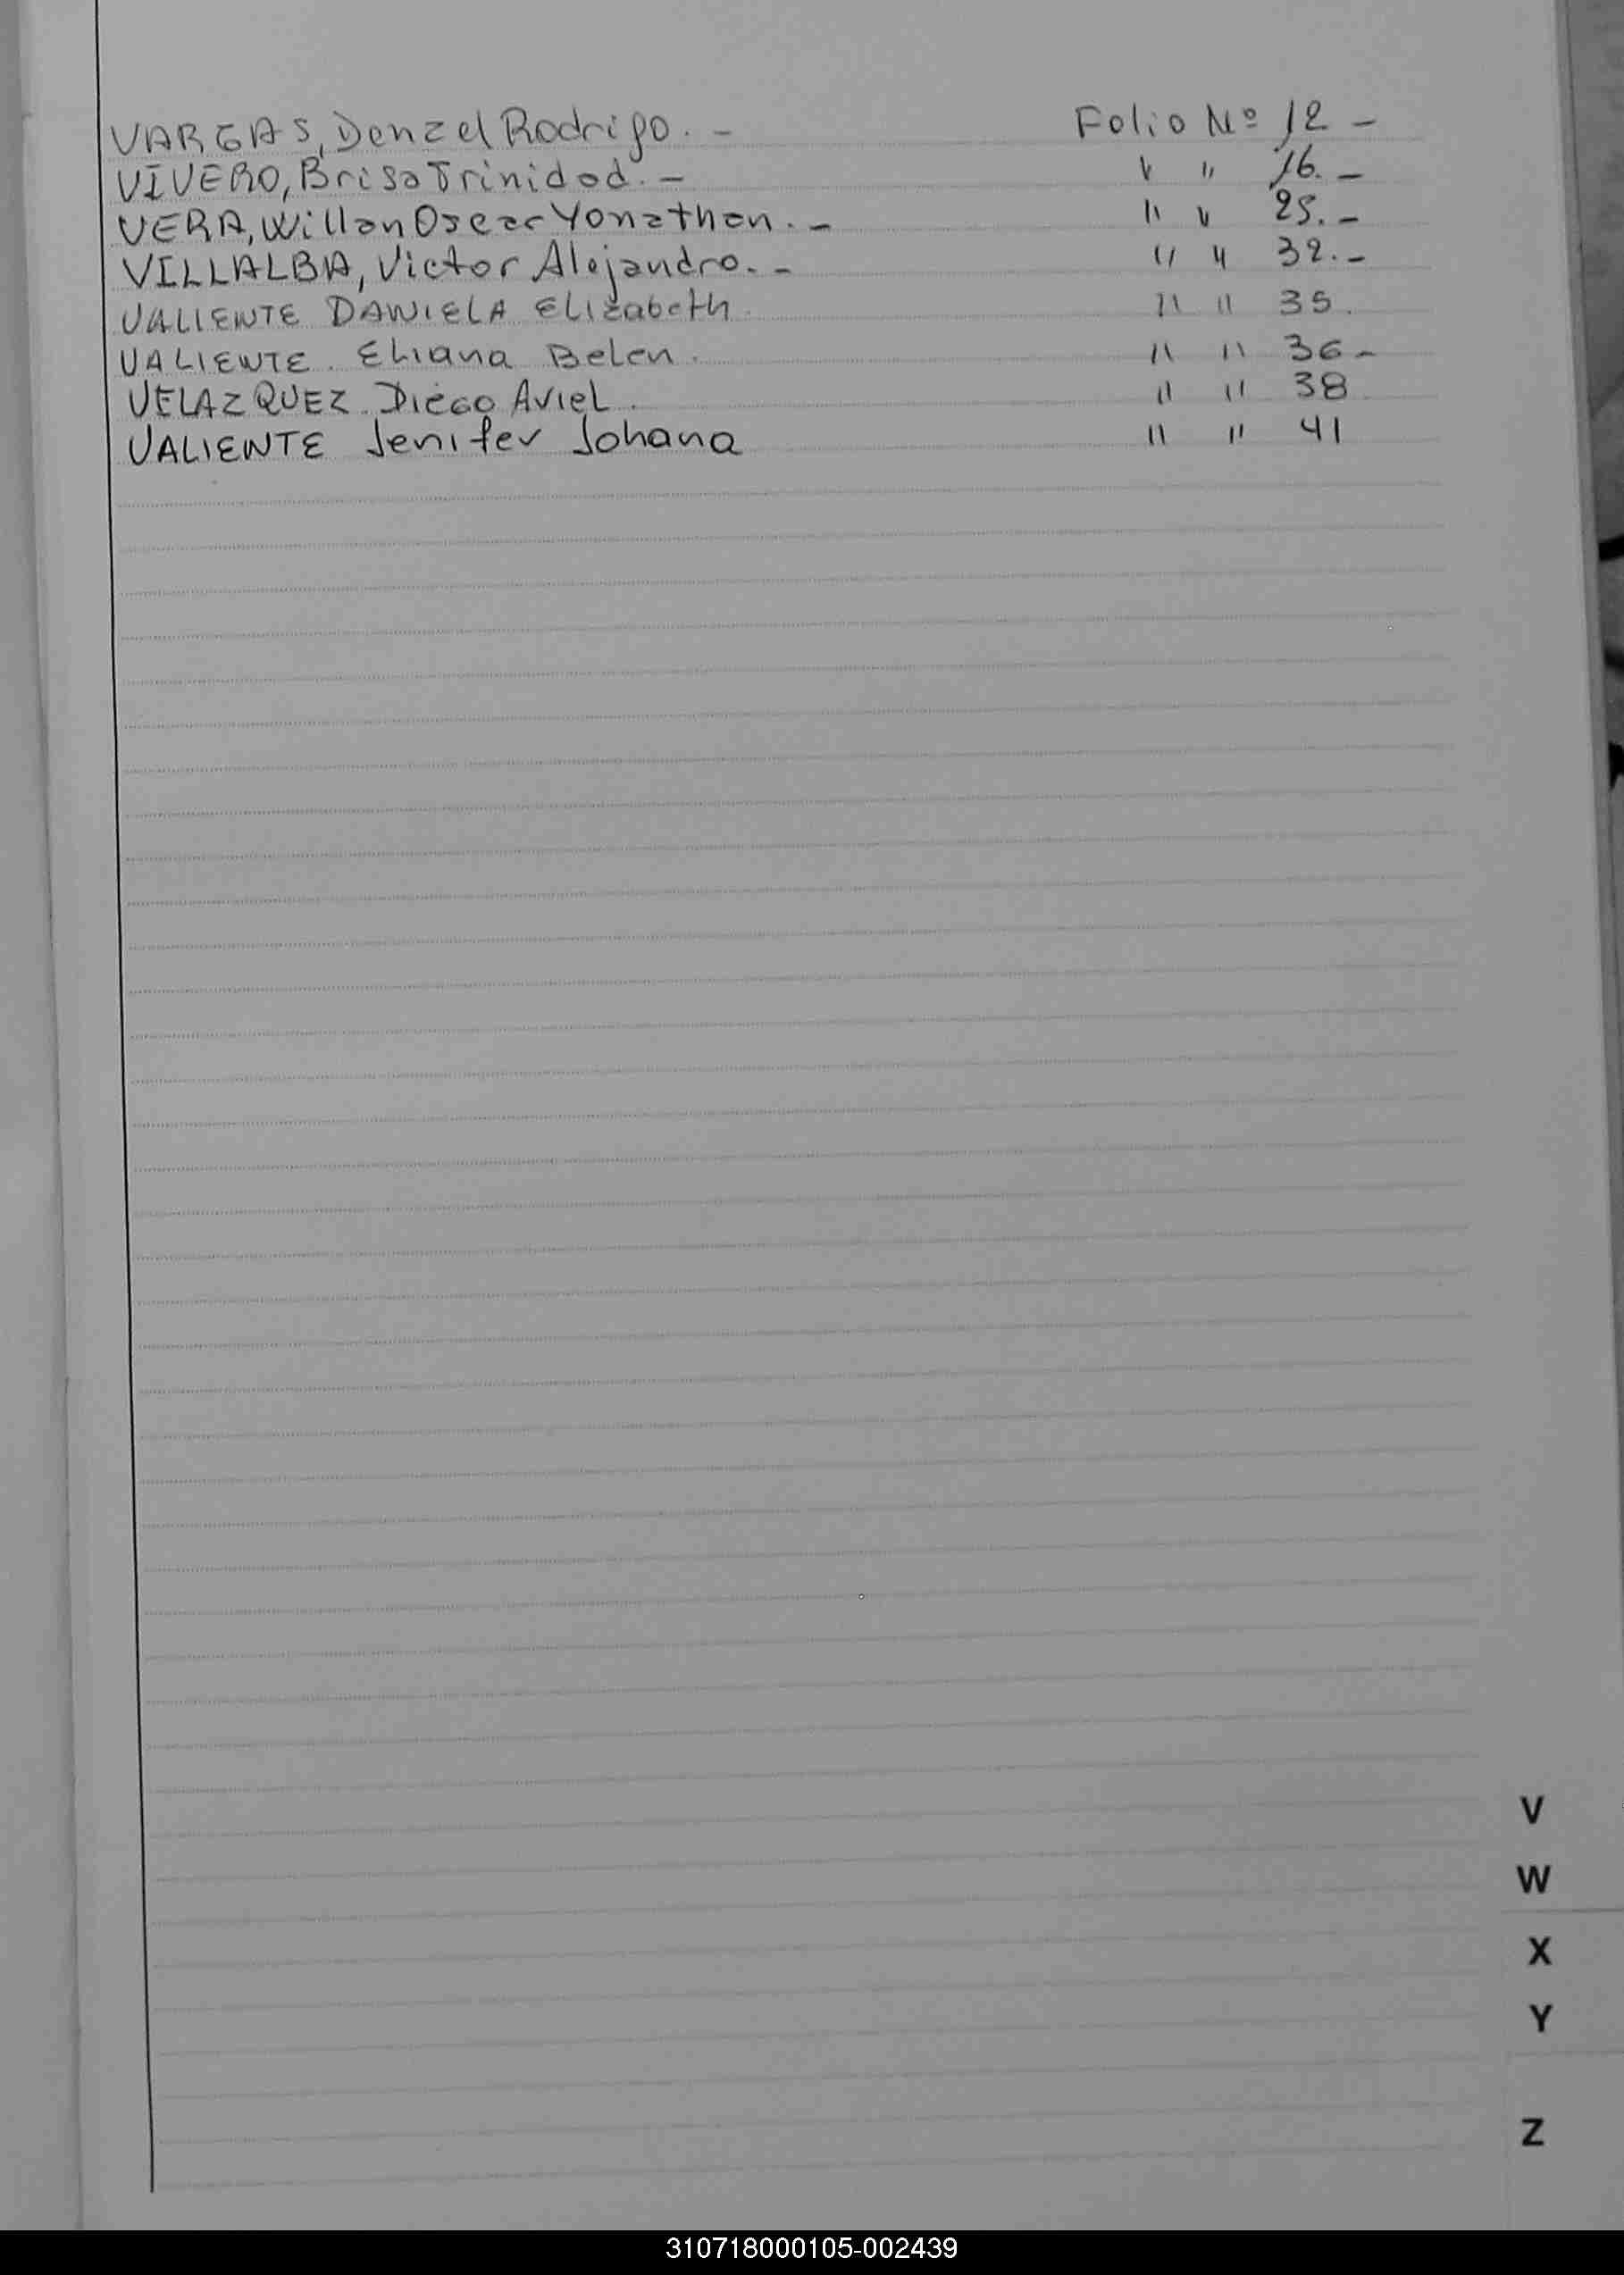 VARGAS, Denzel Rodrigo. - Folio Nº 12 -
VIVERO, Brisa Trinidad. - " " 16. -
VERA, Willan Oscar Yonathan. - " " 25. -
VILLALBA, Victor Alejandro. - " " 32. -
VALIENTE DANIELA Elizabeth. " " 35.
VALIENTE. Eliana Belen. " " 36 -
VELAZQUEZ. Diego Aviel. " " 38
VALIENTE Jenifer Johana " " 41
V
W
X
Y
Z
310718000105-002439